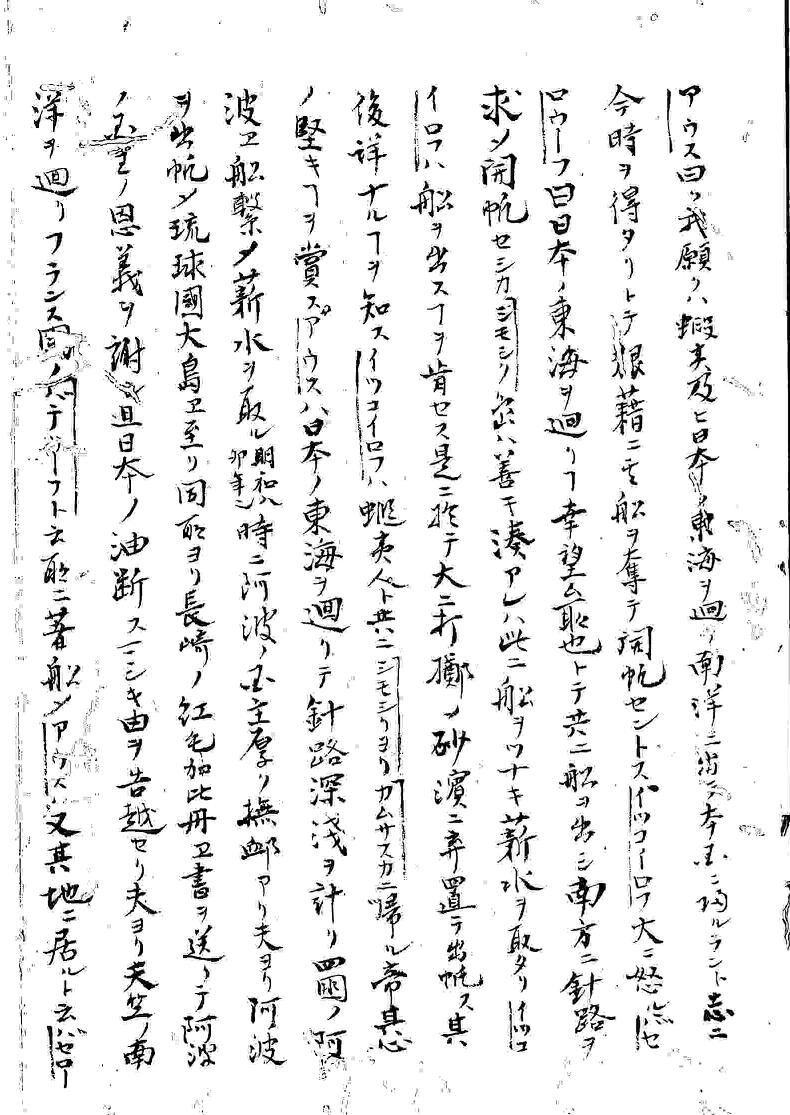 アウス曰ク我願クハ蝦夷及ヒ日本ノ東海ヲ廻リ南洋ニ出テ本国ニ帰ルヲント志ニ
今時ヲ得タリトテ狼藉ニモ船ヲ奪テ開帆セントスイツコイロフ大ニ怒ル
ロウーフ曰日本ノ東海ヲ廻リフ幸望ム所也トテ共ニ船ヲ出シ南方ニ針路ヲ
求メ開帆セシカシモシリ島ハ善キ湊アレハ此ニ船ヲツナキ薪水ヲ取タリイツコ
イロフハ船ヲ出スヿヲ肯セス是ニ於テ大ニ打擲メ砂濱ニ弃置テ出帆ス其
後詳ナルヿヲ知スイツコイロフハ蝦夷人ト共ニシモシリヨリカムサスカニ帰ル帝其志
ノ堅キヿヲ賞スアウスハ日本ノ東海ヲ廻リテ針路深浅ヲ計リ四国ノ阿
波ヱ船繋メ薪水ヲ取ル明和八卯年ニ時ニ阿波ノ国主厚ク撫邺アリ夫ヨリ阿波
ヲ出帆メ琉球國大島ヱ至リ同所ヨリ長崎ノ紅毛加比丹ヱ書ヲ送リテ阿波
ノ国主ノ恩義ヲ謝シ且日本ノ油断スマシキ由ヲ告越セリ夫ヨリ天竺ノ南
洋ヲ廻リフランス国ノ云所ニ著船メアウスハ又其地ニ居ルト云バセロー